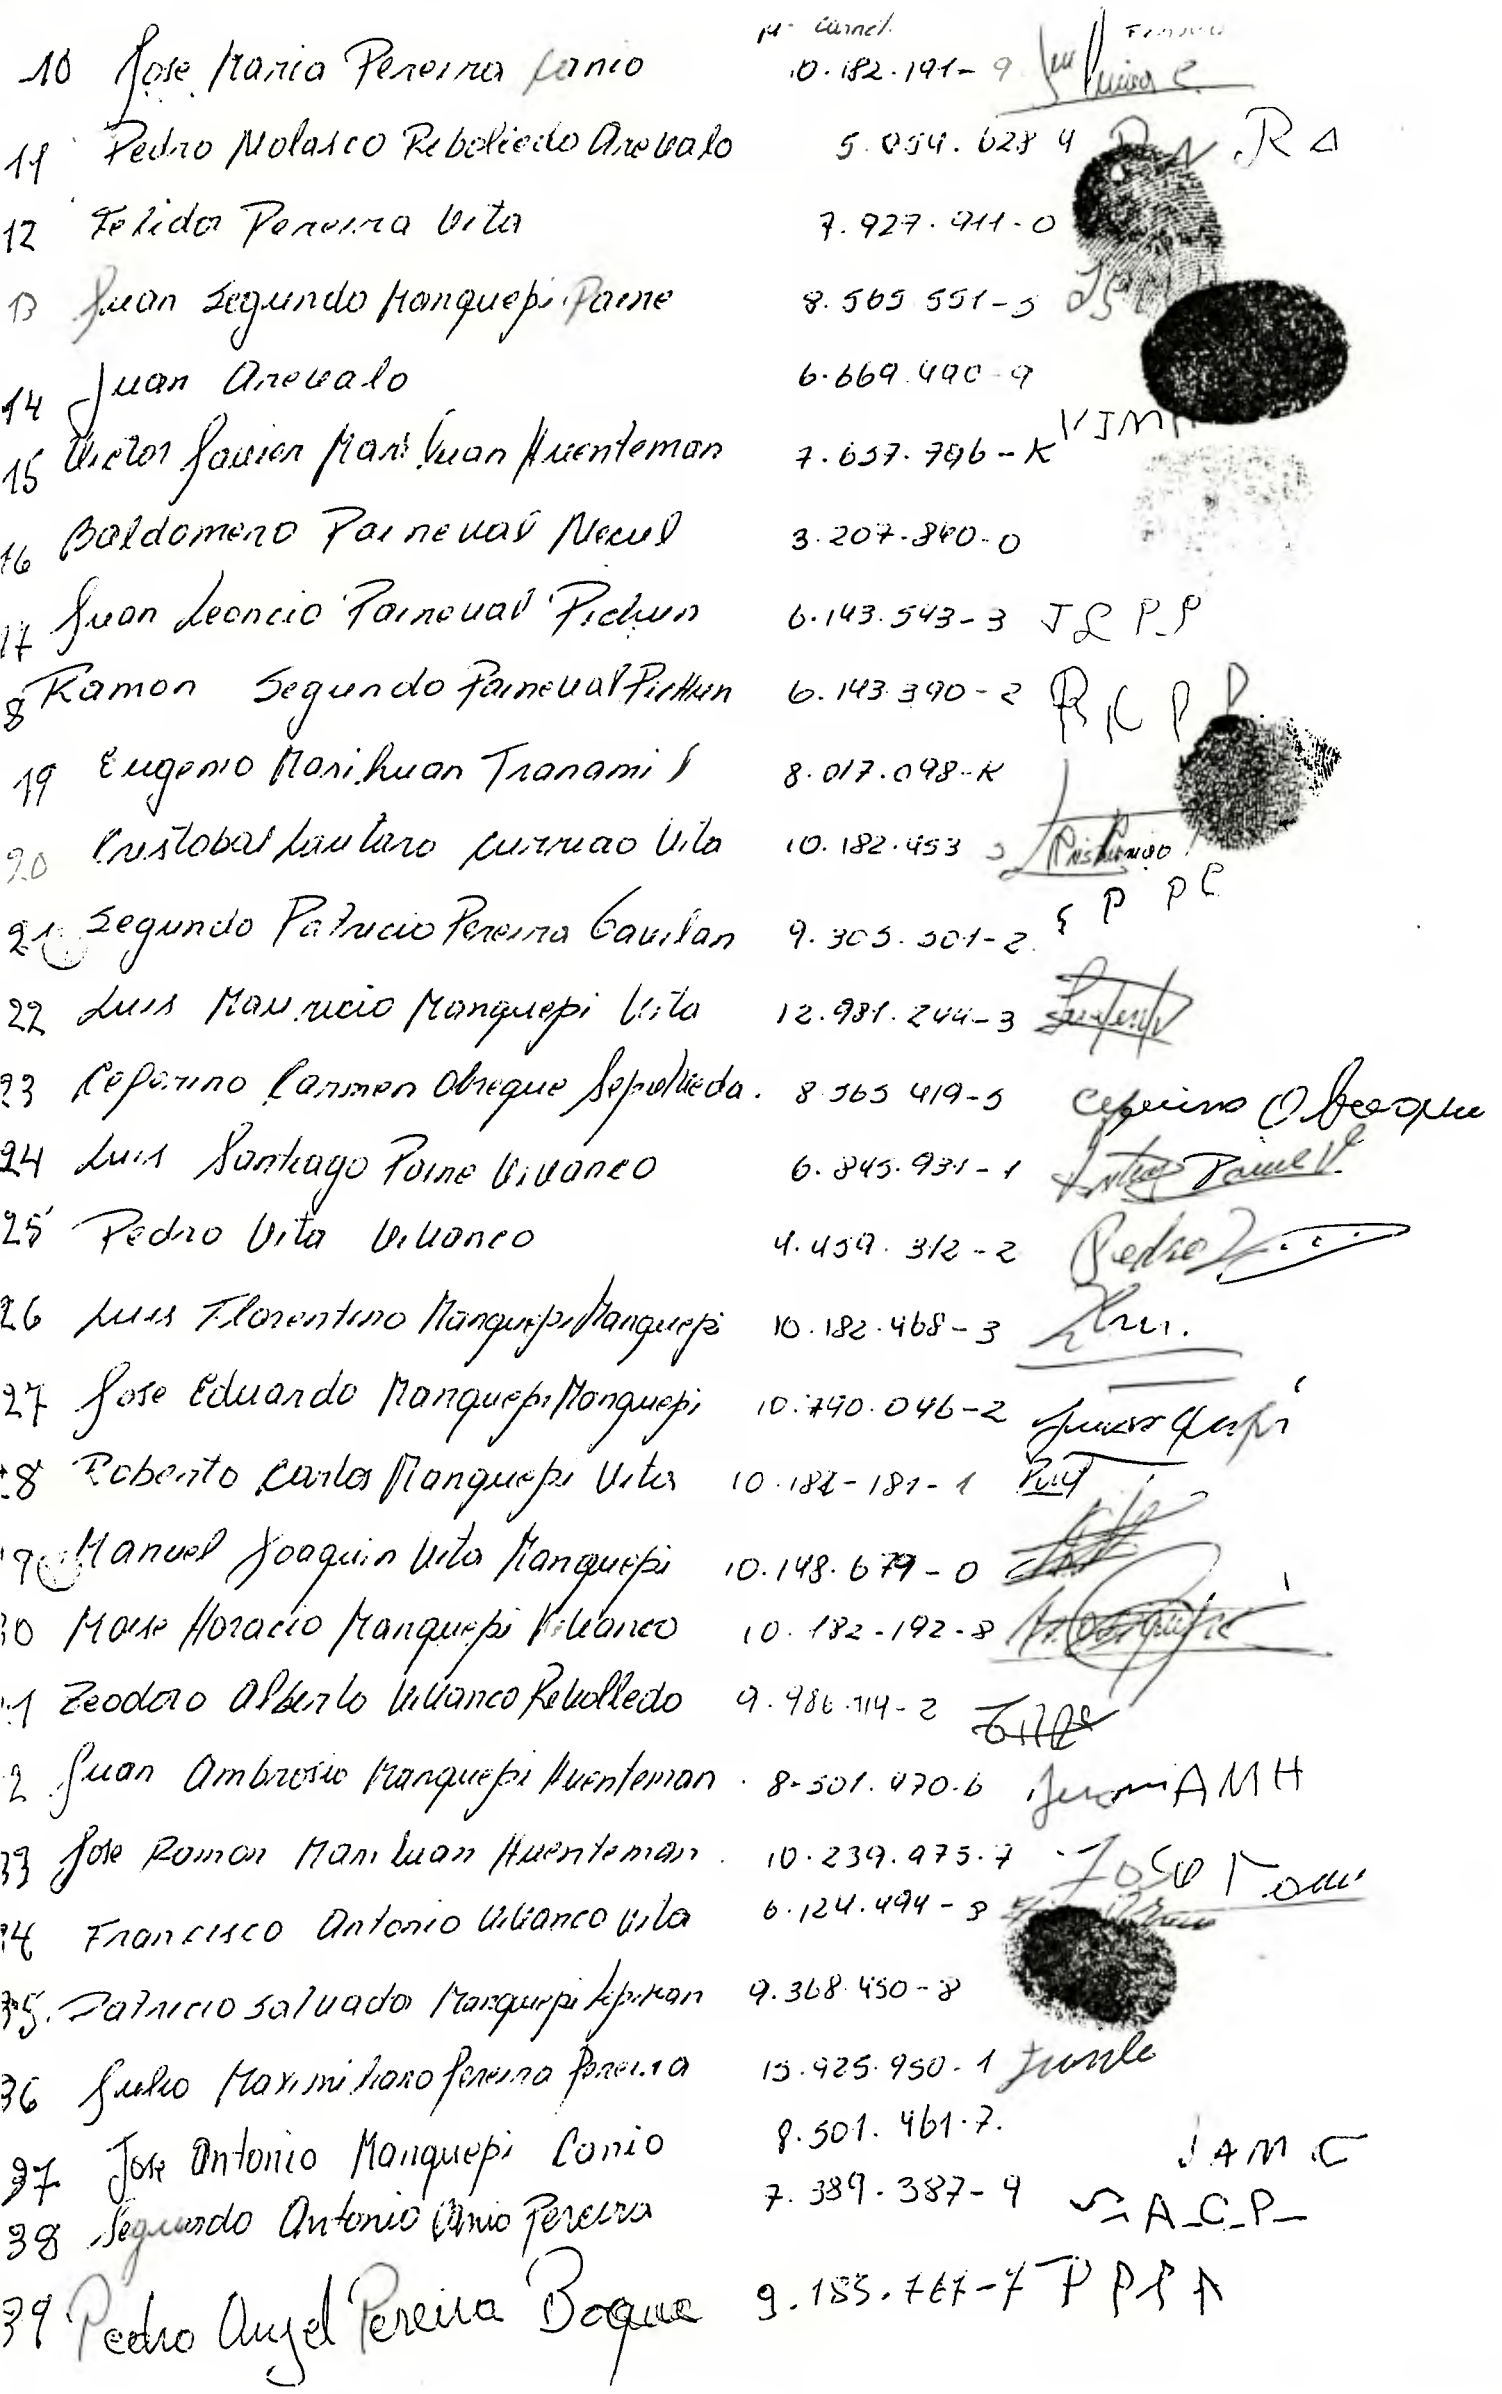 Nº Carnet. Firma
10 Jose Maria Pereira Canio 10.182.191-9
11 Pedro Nolasco Rebolledo Arevalo 5.054.628 4 P N R A
12 Felidor Pereira Vita 7.927.911-0
13 Juan Segundo Manquepi Paine 8.565 551-5
14 Juan Arevalo 6.669.490-9
15 Victor Javier Marihuan Huenteman 7.657.796-K VJM
16 Baldomero Paineval Necul 3.207.840-0
17 Juan Leoncio Paineval Pichun 6.143.543-3 J L P P
8 Ramon Segundo Paineval Pichun 6.143.390-2 R P P
19 Eugenio Marihuan Tranamil 8.017.098-K
20 Cristobal Lautaro Curruao Vita 10.182.453
21 Segundo Patricio Pereira Gavilan 9.305.501-2 S P P C
22 Luis Mauricio Manquepi Vita 12.981.244-3
23 Ceferino Carmen Obreque Sepulveda. 8 565 419-5 Ceferino Obreque
24 Luis Santiago Paine Vivanco 6.845.931-1 Paine V.
25 Pedro Vita Vivanco 4.459.312-2 Pedro
26 Luis Florentino Manquepi Manquepi 10.182.468-3
27 Jose Eduardo Manquepi Manquepi 10.790.046-2
8 Roberto Carlos Manquepi Vita 10.182-181-1
9 Manuel Joaquin Vita Manquepi 10.148.679-0
30 Moise Horacio Manquepi Vivanco 10.182-192-8
1 Teodoro Alberto Vivanco Rebolledo 9.986.114-2
2 Juan Ambrosio Manquepi Huenteman 8-501.470.6 Juan AMH
33 Jose Ramon Marihuan Huenteman 10.239.975.7 Jose
34 Francisco Antonio Vivanco Vita 6.124.494-8
35. Patricio Salvador Manquepi 9.368.450-8
36 Julio Maximiliano Pereira Pereira 15.925.950-1
37 Jose Antonio Manquepi Canio 8.501.461.7. J A M C
38 Segundo Antonio Canio Pereira 7.389.387-9 S A_C_P_
39 Pedro Angel Pereira Boque 9.185.767-7 P P